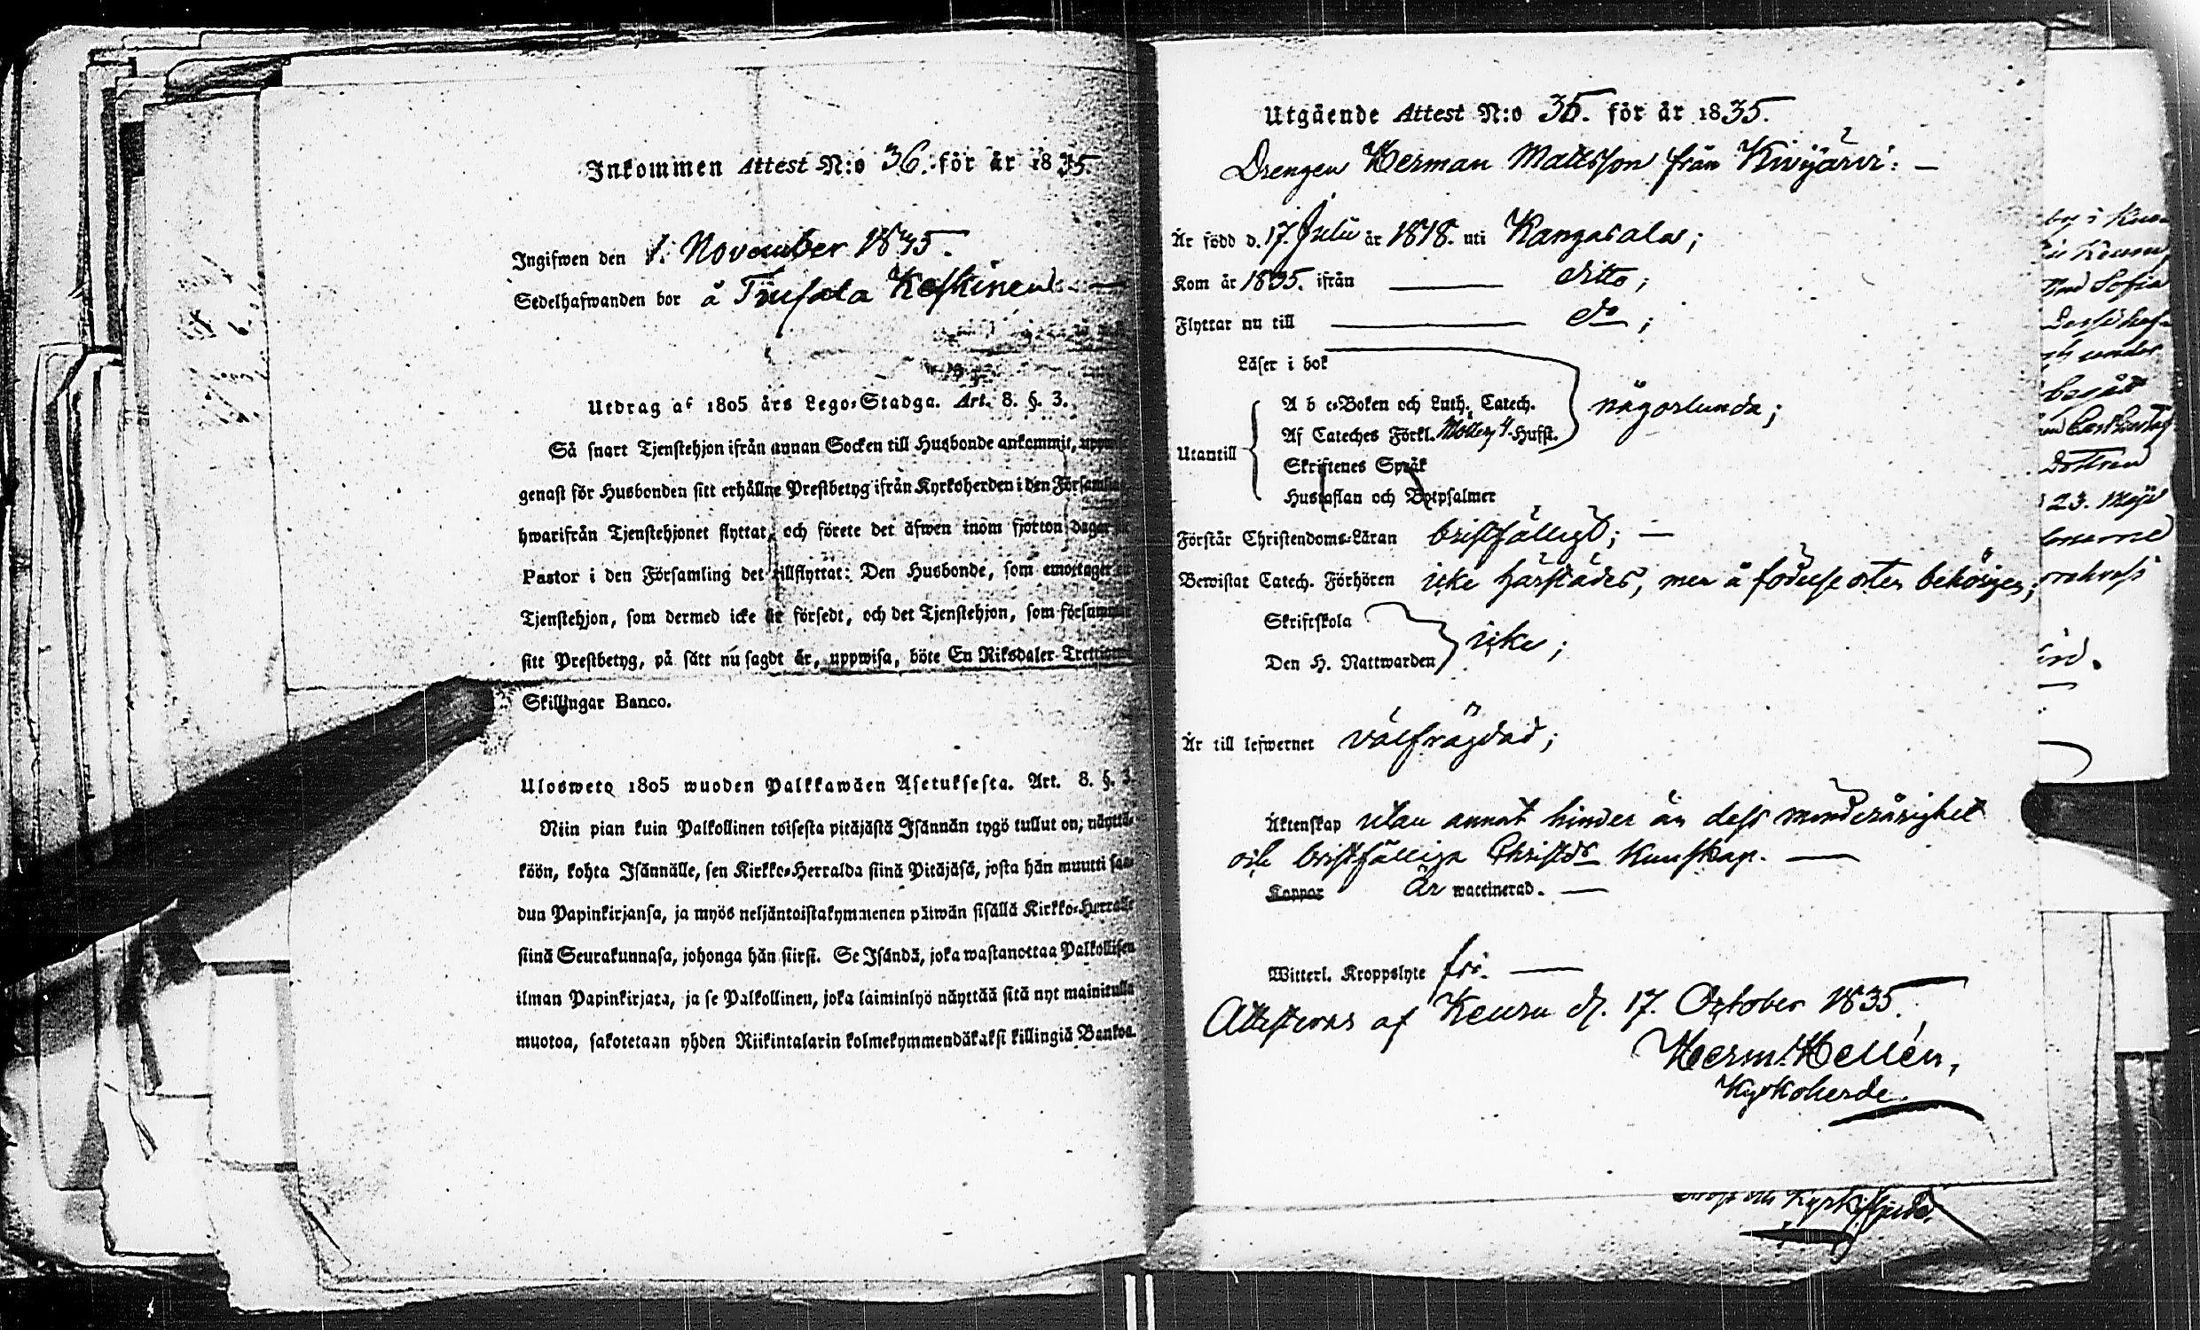 Inkommen Attest N:o 36. för år 1835.
Ingifwen den 1. November 1835.
Sedelhafwanden bor å Keskinen
Utdrag af 1805 års Lego-Stadga. Art. 8. §. 3.
Så snart Tjenstehjon ifrån annan Socken till Husbonde ankommit,
genast för Husbonden sitt erhållne Prestbetyg ifrån Kyrkoherden i den
hwarifrån Tjenstehjonet flyttat, och förete det äfwen inom fjorton dagar
Pastor i den Församling det tillflyttat: Den Husbonde, som emottager
Tjenstehjon, som dermed icke är försedt, och det Tjenstehjon, som
sitt Prestbetyg, på sätt nu sagdt är, uppwisa, böte En Riksdaler
Skillingar Banco.
Ulosweto 1805 wuoden Palkkawäen Asetuksesta. Art. 8. §. 3.
Niin pian kuin Palkollinen toisesta pitäjästä Isännän tygö tullut on, näyttä-
köön, kohta Isännälle, sen Kirkko-Herralda siinä Pitäjäsä, josta hän muutti saa-
dun Papinkirjansa, ja myös neljäntoistakymmenen päiwän sisällä Kirkko-Herralle
siinä Seurakunnasa, johonga hän siirsi. Se Isändä, joka wastanottaa Palkollisen
ilman Papinkirjata, ja se Palkollinen, joka laiminlyö näyttää sitä nyt mainitulla
muotoa, sakotetaan yhden Riikintalarin kolmekymmendäkaksi killingiä Bankoa.
Utgående Attest N:o 35. för år 1835.
Drengen Herman Mattsson från Kivijärvi: —
Är född d. 17. Julii år 1818. uti Kangasala;
Kom år 1835. ifrån — ditto;
Flyttar nu till — do;
Läser i bok
A b c-Boken och Luth. Catech. någorlunda;
Af Cateches Förkl. Hust.
Utantill
Skriftenes Språk
Hustaflan och Botpsalmer
Förstår Christendoms-Läran bristfälligt; —
Bewistat Catech. Förhören icke härstädes, men å födelse orten behörigen;
Skriftskola
icke;
Den H. Nattwarden
Är till lefwernet välfrägdad;
Äktenskap utan annat hinder än dess minderårighet
och bristfälliga Christds Kunskap. —
Koppor Är waccinerad. —
Witterl. Kroppslyte fri. —
Attesteras af Keuru d. 17. October 1835.
Herm. Hellén,
Kyrkoherde.